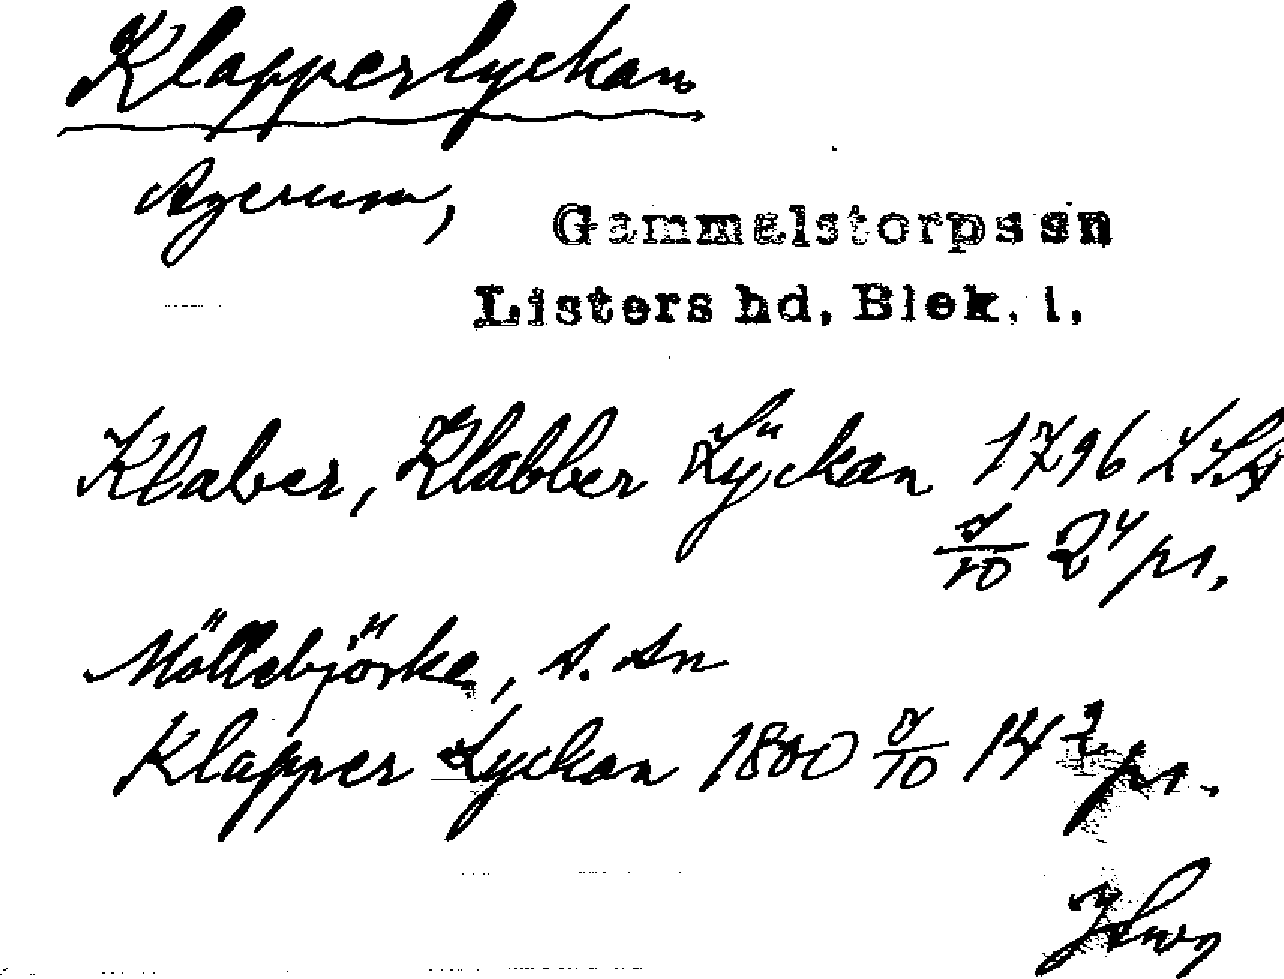 Klapperlyckan
Agerum,
Gammalstorps sn
Listers hd, Blek. l.
Klaber, Klabber Lÿckan 1796 LSA
pr.
Möllebjörke, s. sn
Klapper Lyckan 1800 14 pr.